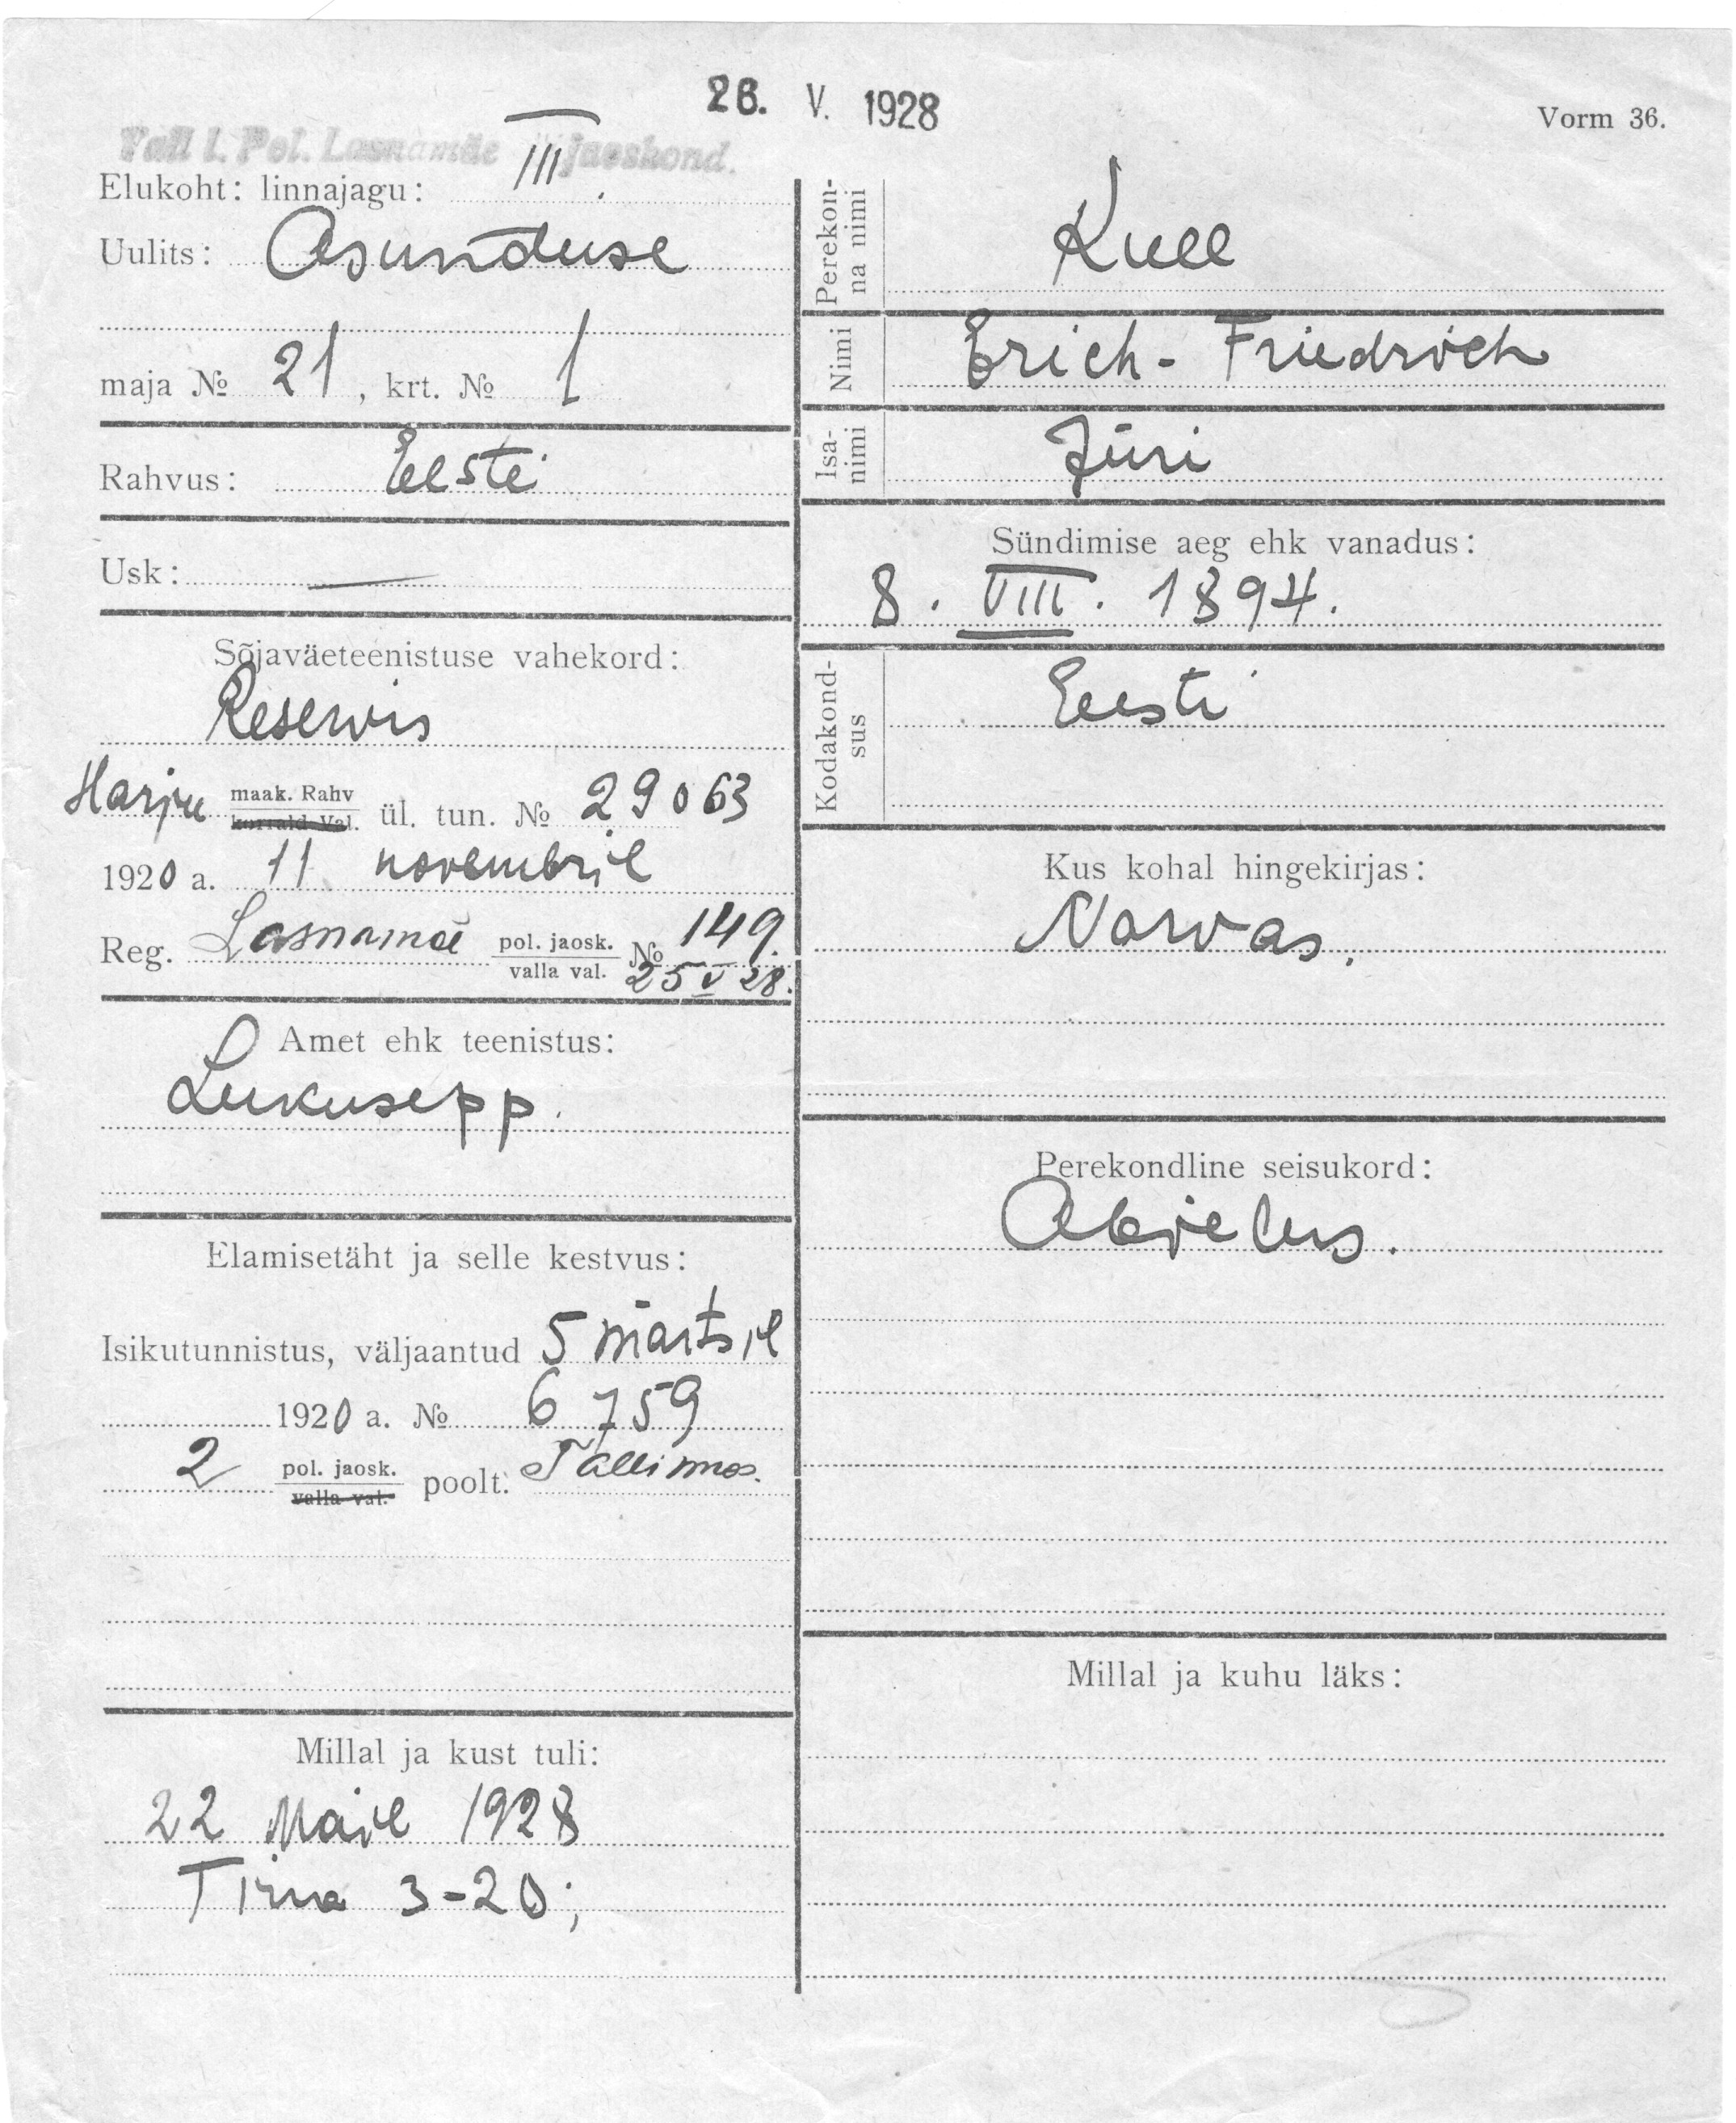 26. V. 1928
Vorm 36.
Tall l. Pol. Lasnamäe jaoskond.
Elukoht: linnajagu: III
Uulits: Asunduse
maja № 21, krt. № 1
Rahvus: Eesti
Usk: —
Sõjaväeteenistuse vahekord:
Reservis
Harju maak. Rahv
korrald. Val. ül. tun. № 29063
1920 a. 11 novembril
Reg. Lasnamäe pol. jaosk.
valla val. № 149.
25 V 28.
Amet ehk teenistus:
Lukusepp.
Elamisetäht ja selle kestvus:
Isikutunnistus, väljaantud 5 märtsil
1920 a. № 6759
2 pol. jaosk.
valla val. poolt: Tallinnas.
Millal ja kust tuli:
22 Mail 1928
Tina 3-20;
Perekon-
na nimi
Kull
Nimi
Erich-Friedrich
Isa-
nimi
Jüri
Sündimise aeg ehk vanadus:
8. VIII. 1894.
Kodakond-
sus
Eesti
Kus kohal hingekirjas:
Narvas.
Perekondline seisukord:
Abielus.
Millal ja kuhu läks: